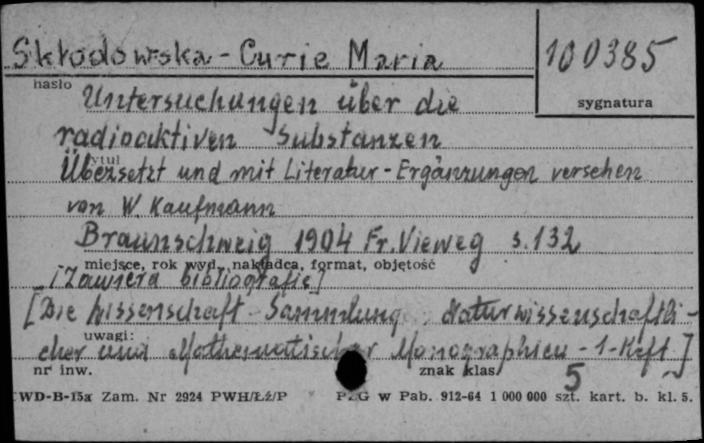 Skłodowska-Curie Maria
100385
hasło
sygnatura
Untersuchungen über die
radioaktiven Substanzen
tytuł
Übersetzt und mit Literatur-Ergänzungen versehen
von W. Kaufmann
Braunschweig 1904 Fr. Vieweg s. 132
miejsce, rok wyd., nakładca, format, objętość
[Zawiera bibliografię]
[Die Wissenschaft Sammlung Naturwissenschaftli-
uwagi:
cher und Mathematischer Monographien - 1-Heft]
nr inw.
znak klas.
5
WD-B-15a Zam. Nr 2924 PWH/Łż/P
PZG w Pab. 912-64 1 000 000 szt. kart. b. kl. 5.